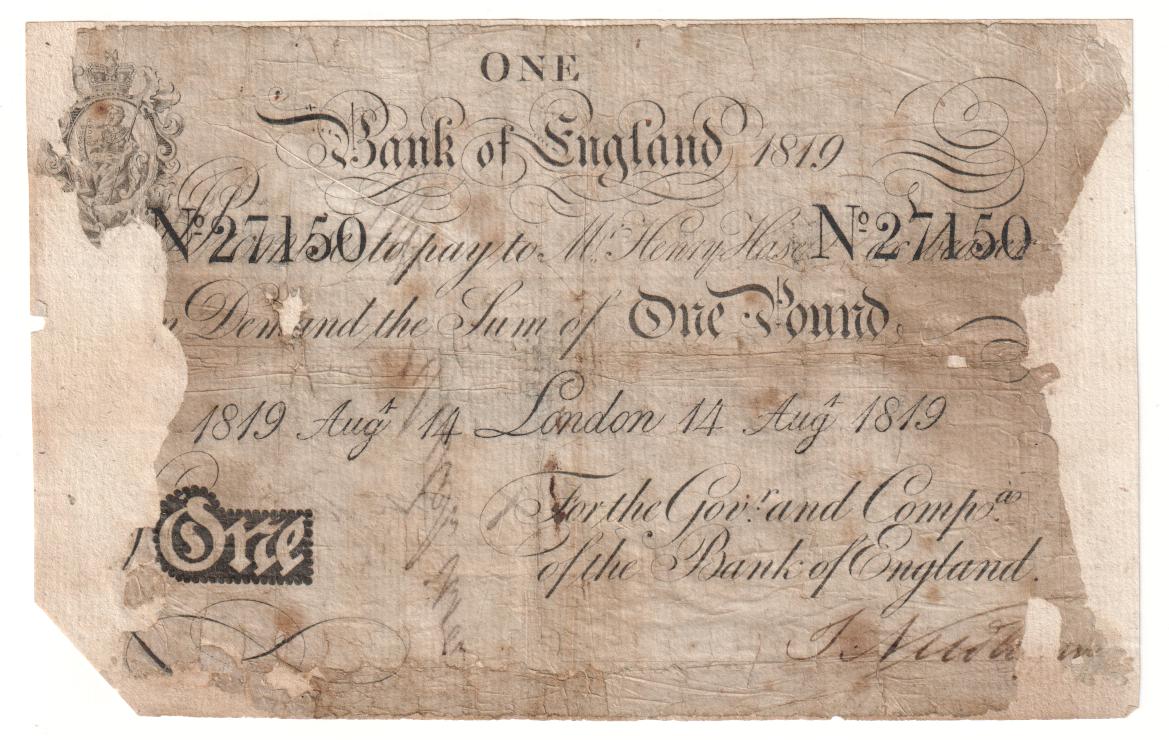 ONE
Bank of England 1819
Nº 27150 to pay to Mr. Henry Hase Nº 27150
Demand the Sum of One Pound.
1819 Augt 14 London 14 Augt 1819
For the Govr. and Compa.
One
of the Bank of England.